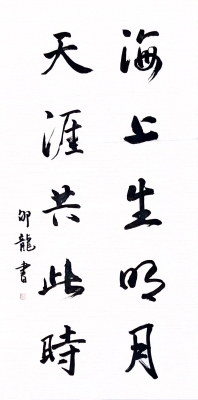 海上生明月
天涯共此時
邰龍書